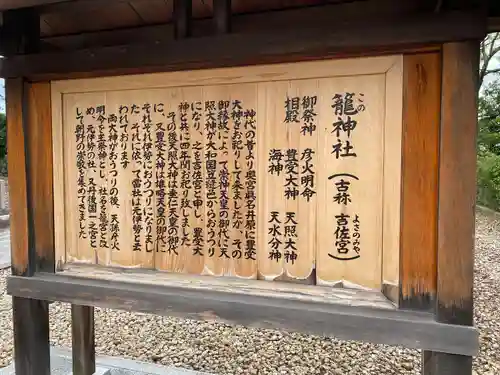 籠神社（古称 吉佐宮）
この
よさのみや
御祭神 彦火明命
相殿 豊受大神 天照大神
海神 天水分神
神代の昔より奥宮眞名井原に豊受
大神をお祀りして来ましたが、その
御縁故によって崇神天皇の御代に天
照大神が大和国笠縫邑からおうつり
になり、之を吉佐宮と申し、豊受大
神と共に四年間お祀り致しました
その後天照大神は垂仁天皇の御代
に、又豊受大神は雄略天皇の御代に
それぞれ伊勢におうつりになりまし
た。それに依って當社は元伊勢と云
われております
両大神がおうつりの後、天孫彦火
明命を主祭神とし、社名を籠宮と改
め、元伊勢の社、又丹後國一之宮と
して朝野の崇敬を集めてきました